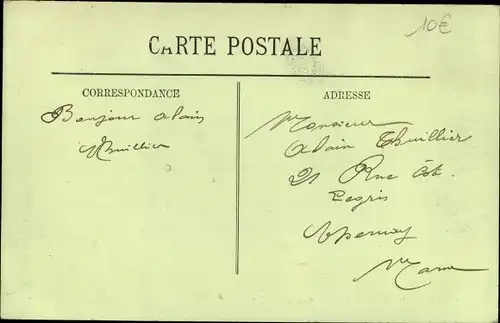 10€
CARTE POSTALE
CORRESPONDANCE
ADRESSE
Bonjour Alain
Thuillier
Monsieur
Alain Thuillier
21 Rue
Legris
Epernay
Marne